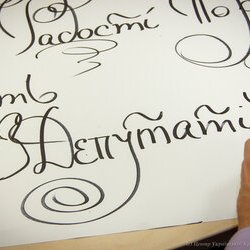 Радості По
ть
З Депутаті